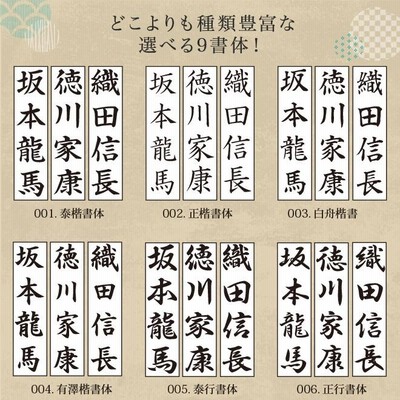 どこよりも種類豊富な
選べる9書体！
織田信長
徳川家康
坂本龍馬
001. 泰楷書体
織田信長
徳川家康
坂本龍馬
002. 正楷書体
織田信長
徳川家康
坂本龍馬
003. 白舟楷書
織田信長
徳川家康
坂本龍馬
004. 有澤楷書体
織田信長
徳川家康
坂本龍馬
005. 泰行書体
織田信長
徳川家康
坂本龍馬
006. 正行書体